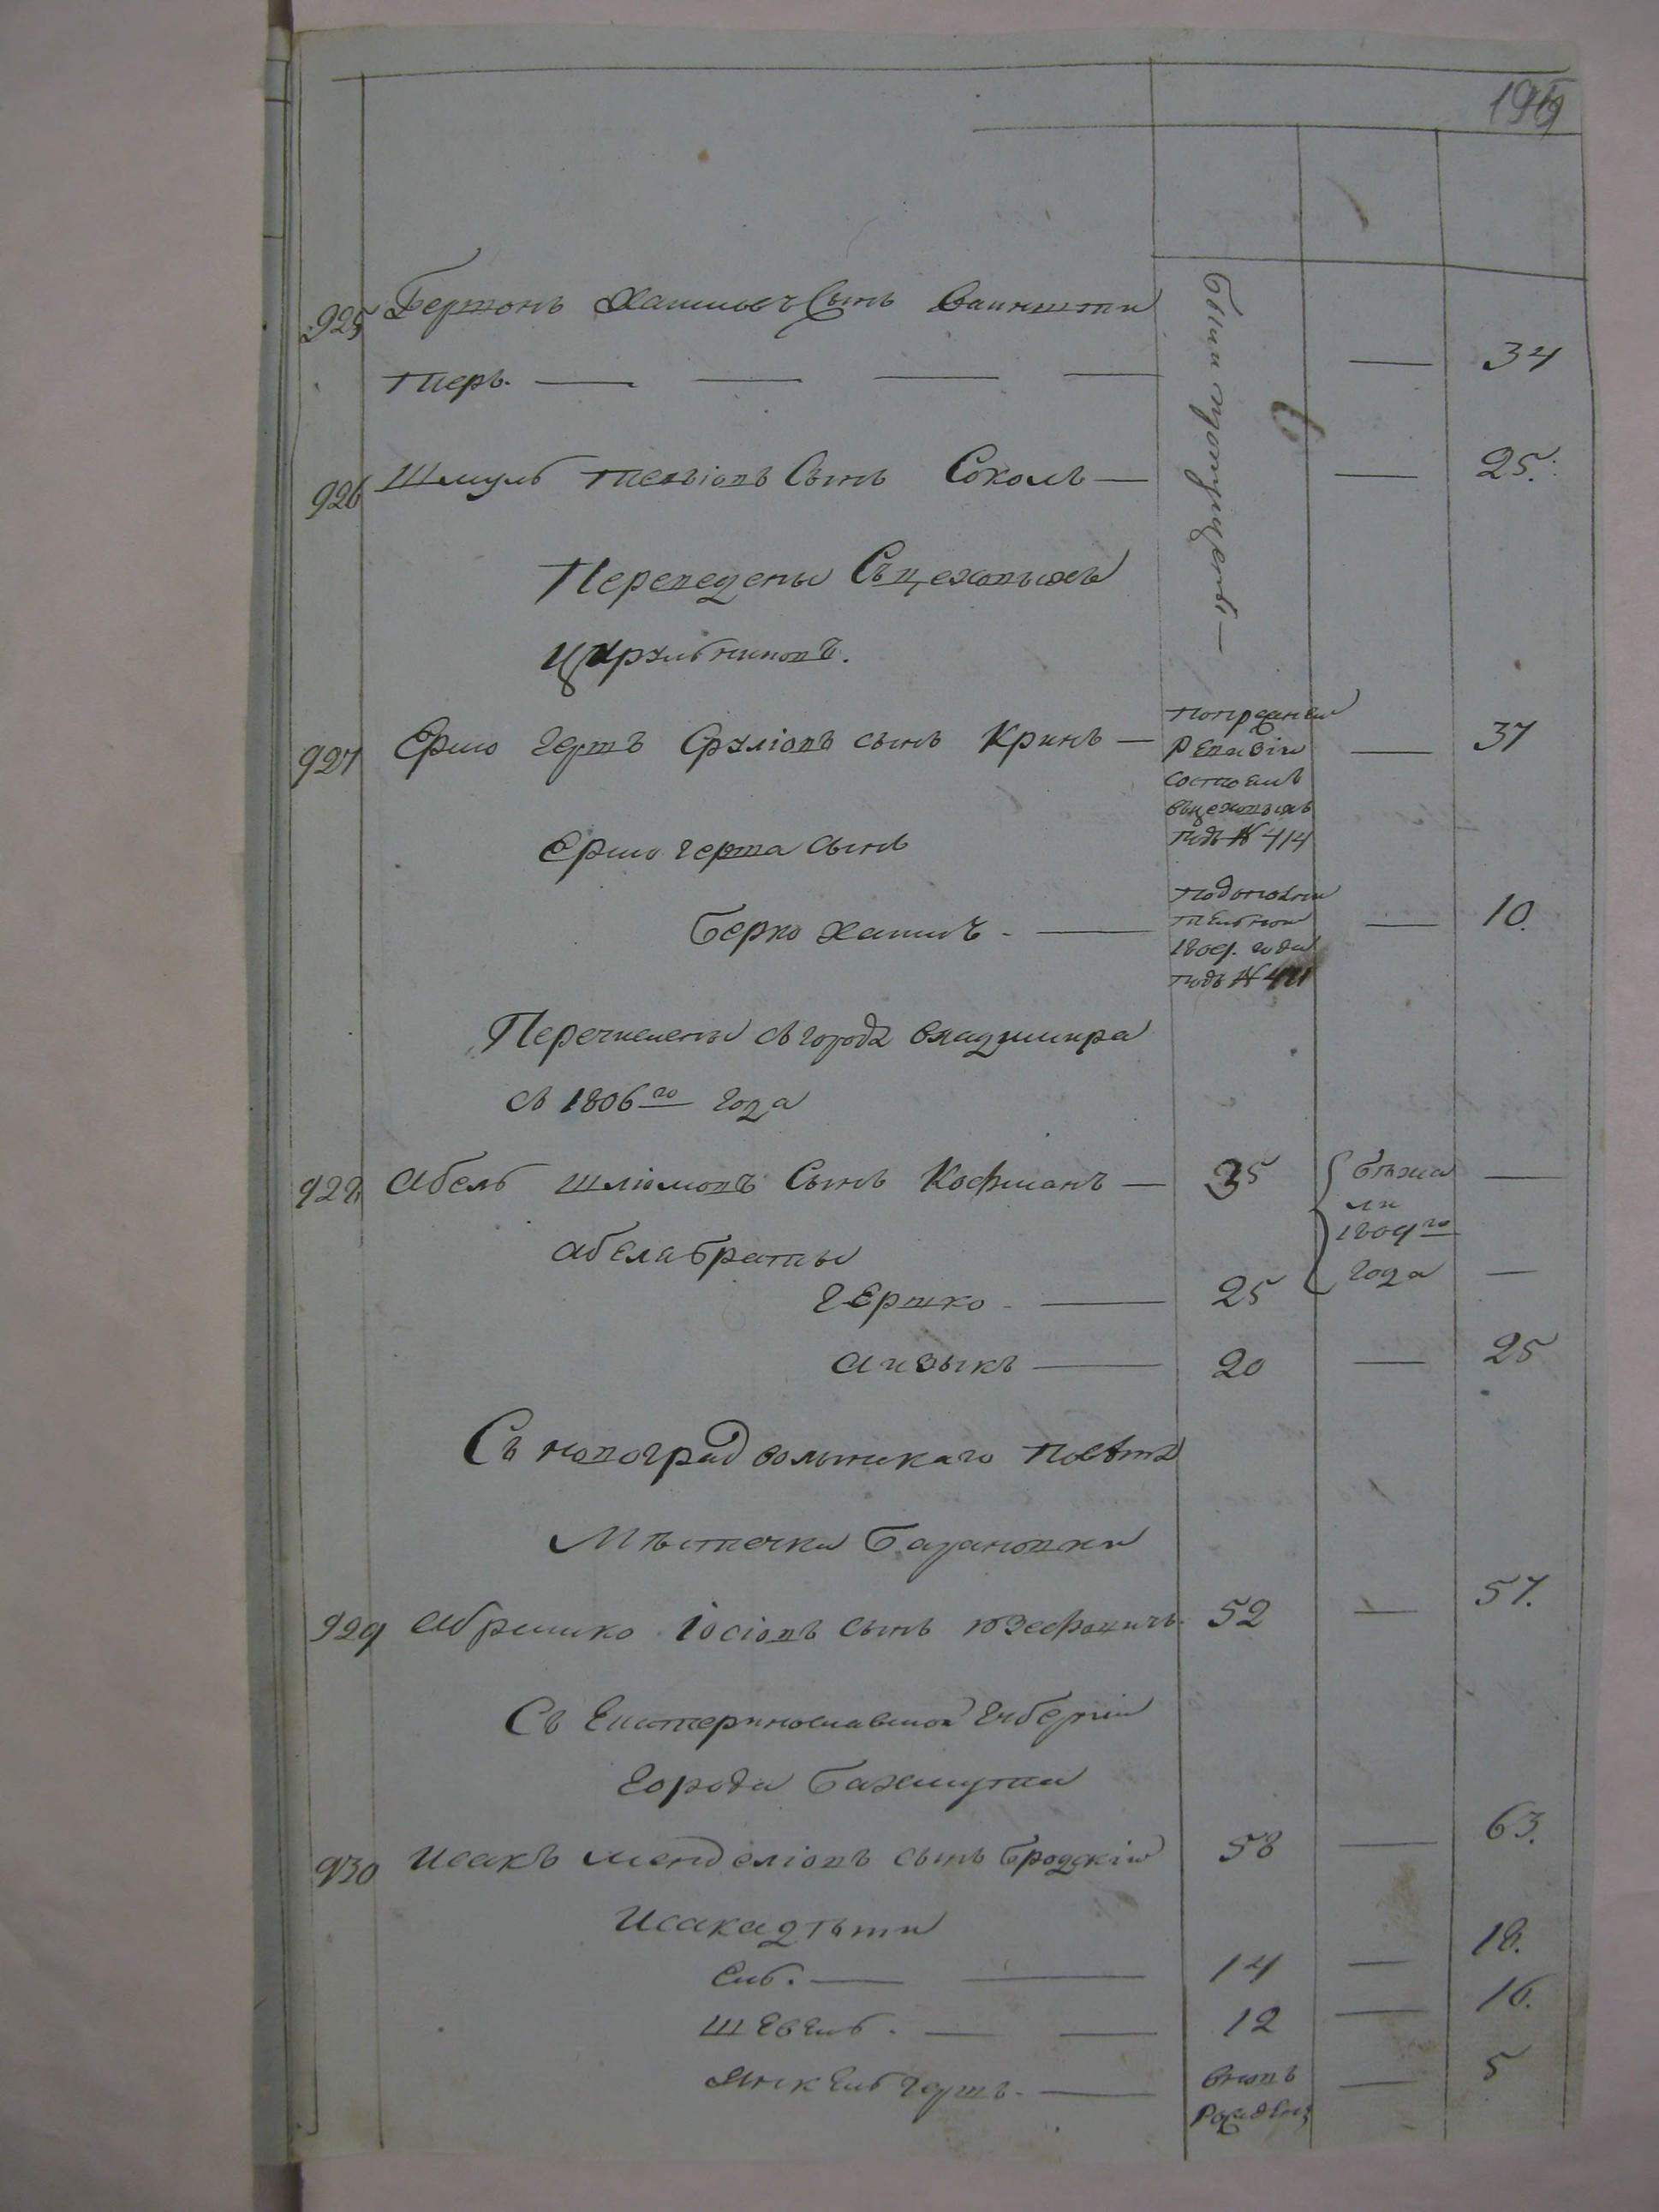 196
925 Бертонъ Хаимов Сынъ Ваинштеи
Были пропущены —
34
926 Шмуль Сынъ Соколъ —
— 25.
Переведены Съ цеховыхъ
Цырульниковъ.
927 Ершо Герть Срулiовъ сынъ Кринъ —
По прежней
Ревизiи
состоялъ
въ цеховыхъ
подъ № 414
— 37
Ершо герта сынъ
Берко Хаимъ. —
по дополни
тельной
180 . года
подъ №
— 10.
Перечислены съ города Владимира
съ 1806го года
928 Абель Шлiомовъ Сынъ Кофманъ —
35
бежа
ли
1809го
года
—
Абеля братья
Гершко. —
25
—
Аизыкъ —
20 — 25
Съ Новоградволынскаго повѣта
Мѣстечка Барановки
929 Абрамко Iосiовъ сынъ Юзефовичъ.
52 — 57.
Съ Екатеринославской Губернiи
города Бахмута
930 Исакъ Менделiовъ сынъ Бродскiй
58 — 63.
Исака дѣти
Ель. —
14 — 18.
Шевель. —
12 — 16.
Янкель Герть. —
вновь
рожденъ
— 5